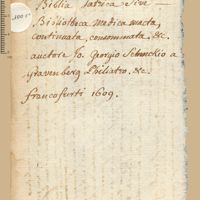 Biblia Iatrica Sive
Bibliotheca Medica macta,
continuata, consummata, &c.
auctore Jo. Georgio Schenckio a
Gravenberg Philiatro. &c.
francofurti 1609.